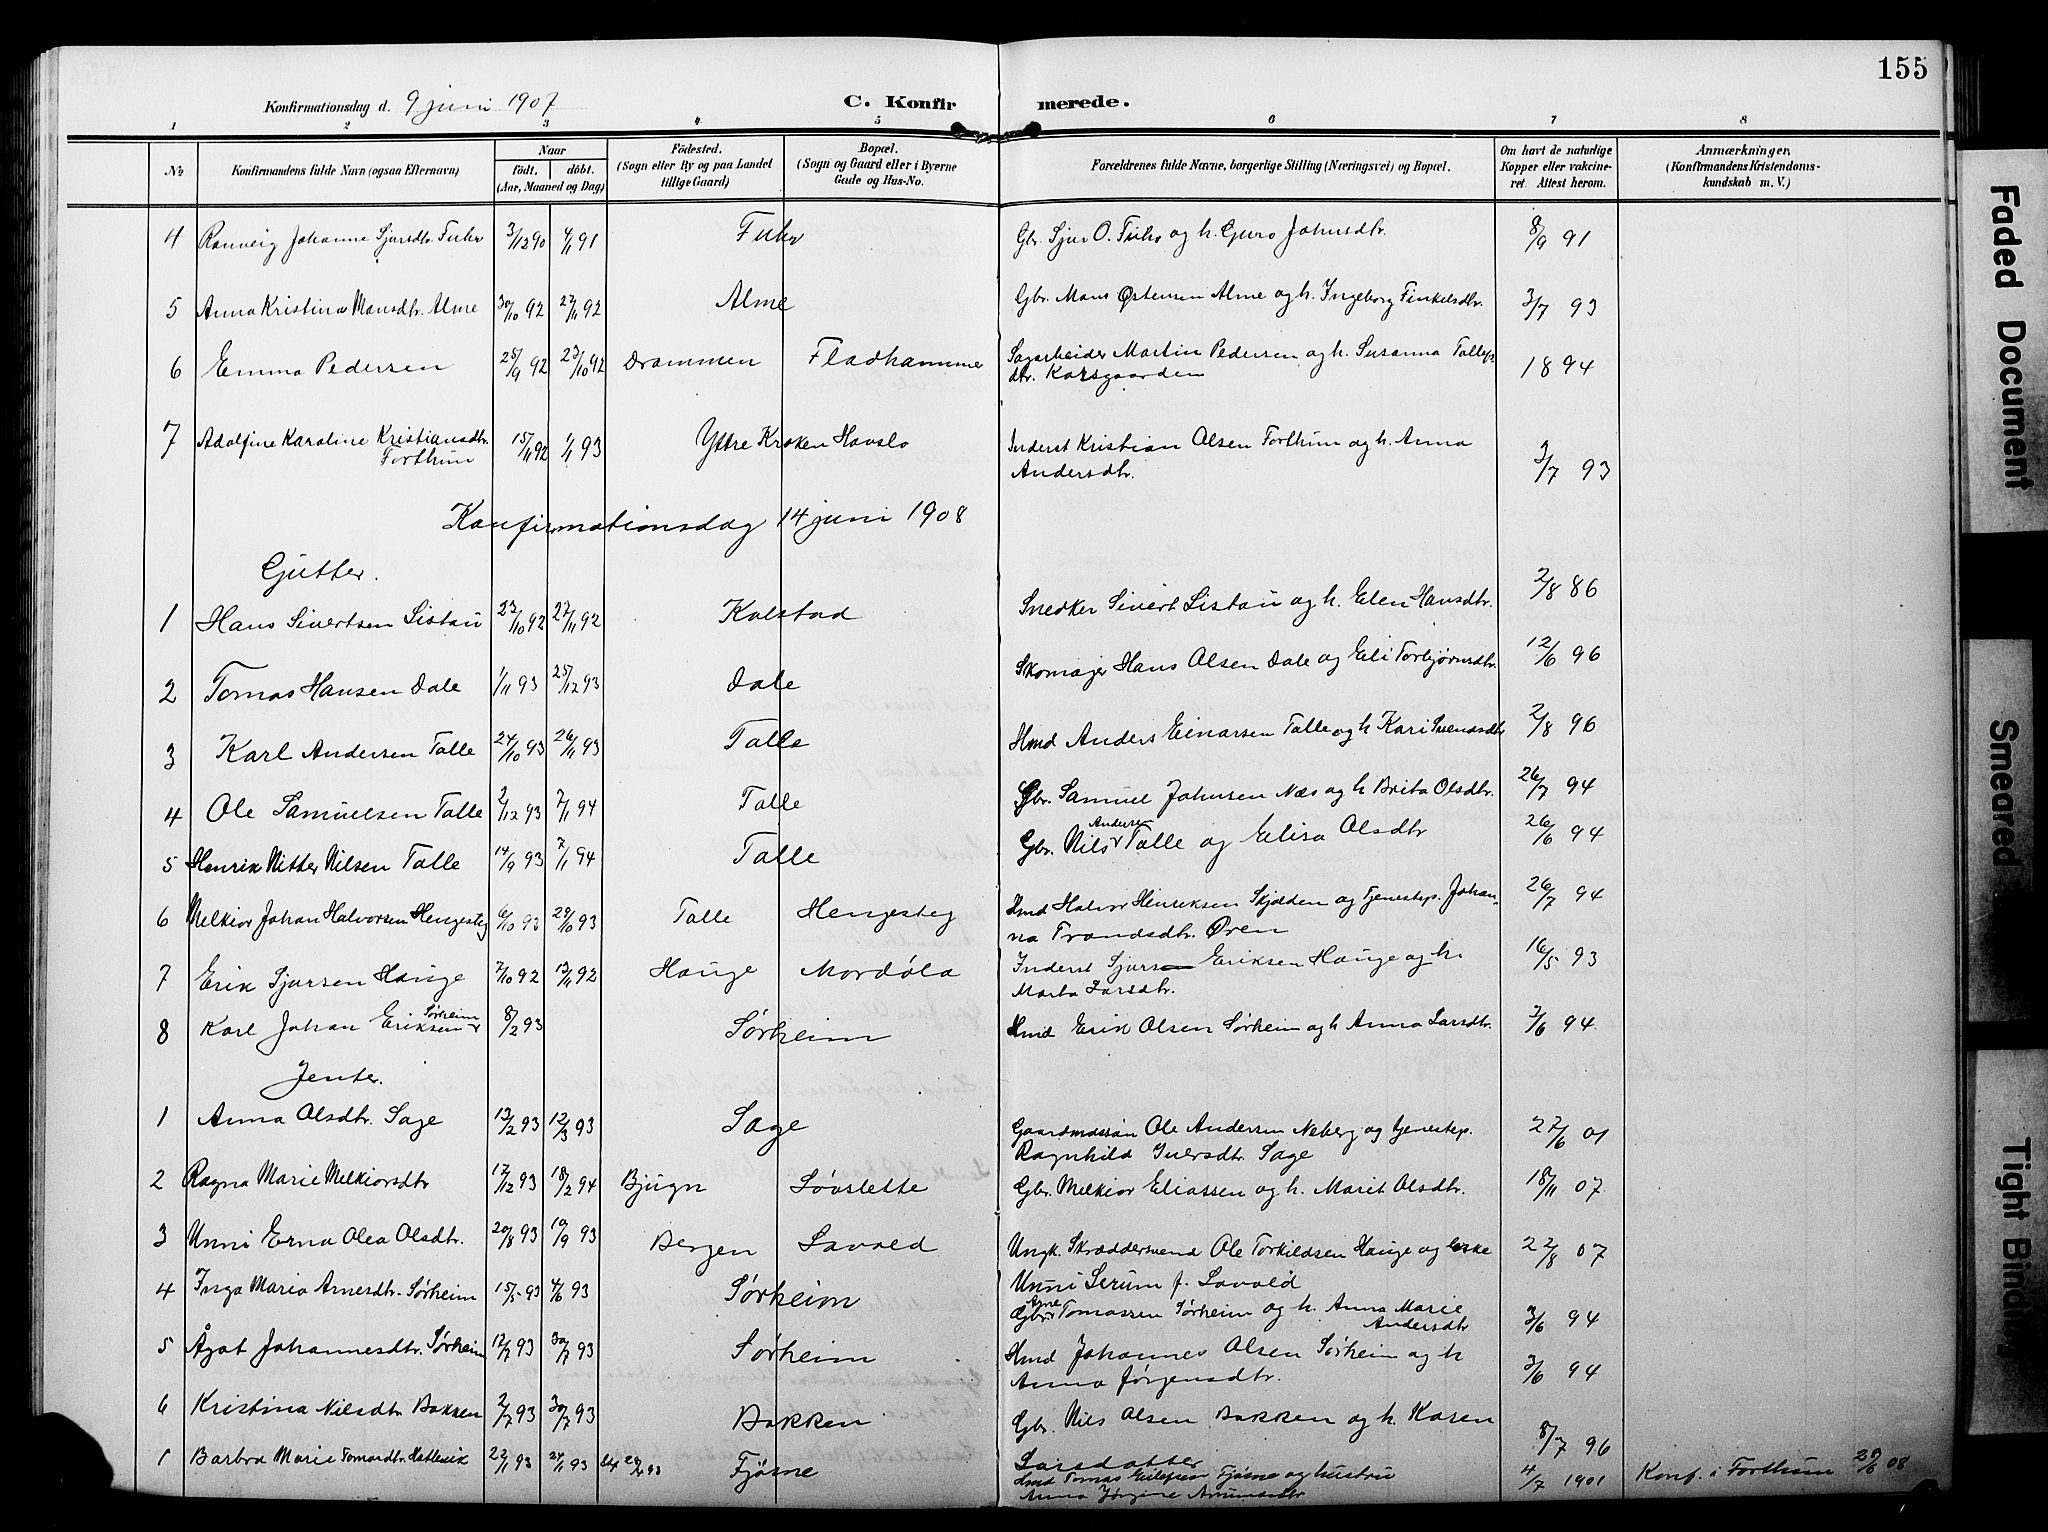 155
Konfirmationsdag d. 9 juni 1907 C. Konfir merede.
1 2 3 4 5 6 7 8
No Konfirmandens fulde Navn (ogsaa Efternavn) Naar født. døbt. (Aar, Maaned og Dag) Fødested. (Sogn eller By og paa Landet tillige Gaard) Bopæl. (Sogn og Gaard eller i Byerne Gade og Hus-No. Forældrenes fulde Navne, borgerlige Stilling (Næringsvei) og Bopæl. Om havt de naturlige Kopper eller vakcineret. Attest herom. Anmærkninger, (Konfirmandens Kristendomskundskab m. V.)
4 Ranveig Johanne Sjursdtr. Fuhr 3/12 90 4/1 91 Fuhr Gbr. Sjur O. Fuhr og h. Guro Johnsdtr. 8/9 91
5 Anna Kristina Monsdtr. Alme 30/10 92 27/11 92 Alme Gbr. Mons Østensen Alme og h. Ingeborg Finkelsdtr. 3/7 93
6 Emma Pedersen 25/9 92 23/10 92 Drammen Fladhammer Sagarbeider Martin Pedersen og h. Susanna Tollefs
dtr. Korsgaarden 18 94
7 Adolfine Karoline Kristiansdtr. 15/11 92 1/1 93 Yttre Kroken Havslo Inderst Kristian Olsen Forthun og h. Anna
Forthun Andersdtr. 3/7 93
Konfirmationsdag 14 juni 1908
Gjutter.
1 Hans Sivertsen Listou 23/10 92 27/11 92 Kolstad Snedker Sivert Listou og h. Elen Hansdtr. 2/8 86
2 Tomas Hansen Dale 1/11 93 25/12 93 Dale Skomager Hans Olsen Dale og Eli Torbjørnsdtr. 12/6 96
3 Karl Andersen Talle 24/10 93 26/11 93 Talle Hmd Anders Einarsen Talle og h Kari Svensdtr 2/8 96
4 Ole Samuelsen Talle 2/12 93 7/1 94 Talle Gbr. Samuel Johnsen Næs og h Brita Olsdtr. 26/7 94
Andersen
5 Henrik Nitter Nilsen Talle 14/9 93 7/1 94 Talle Gbr. Nils Talle og Elisa Olsdtr 26/6 94
6 Melkior Johan Halvorsen Hengesteg 6/10 93 29/10 93 Talle Hengesteg Hmd Halvor Henriksen Skjolden og tjenestep. Johan-
na Trondsdtr. Øren 26/7 94
7 Erik Sjursen Hauge 7/10 92 13/11 92 Hauge Mordøla Inderst Sjur Eriksen Hauge og h.
Marta Larsdtr. 16/5 93
8 Karl Johan Eriksen Sørheim 8/2 93 Sørheim Hmd Erik Olsen Sørheim og h Anna Larsdtr. 3/6 94
Jenter.
1 Anna Olsdtr. Sage 13/2 93 12/3 93 Sage Gaardmandssøn Ole Andersen Neberg og tjenestep.
Ragnhild Iversdtr. Sage 27/6 01
2 Ragna Marie Melkiorsdtr 17/12 93 18/2 94 Bjugn Søvslette Gbr. Melkior Eliassen og h. Marit Olsdtr. 18/11 07
3 Unni Erna Olea Olsdtr. 20/8 93 19/9 93 Bergen Lavold Ungk. Skræddersvend Ole Torkildsen Hauge og
Unni Serum f. Lavold 22/8 07
4 Inga Maria Arnesdtr. Sørheim 15/5 93 4/6 93 Sørheim Gbr. Arne Tomassen Sørheim og h. Anna Marie
Andersdtr 3/6 94
5 Ågot Johannesdtr. Sørheim 12/7 93 30/7 93 Sørheim Hmd Johannes Olsen Sørheim og h
Anna Jørgensdtr. 3/6 94
6 Kristina Nilsdtr Bakken 2/7 93 30/7 93 Bakken Gbr. Nils Olsen Bakken og h. Karen
Larsdatter 8/7 96
1 Barbra Marie Tomasdtr. Hatlevik 22/1 93 24/1 93 Fjøsne Hmd Tomas Fjøsne og hustru
Anna Jørgine 4/7 1901 Konf. i Forthun 28/6 08
Faded Document
Smeared
Tight Binding